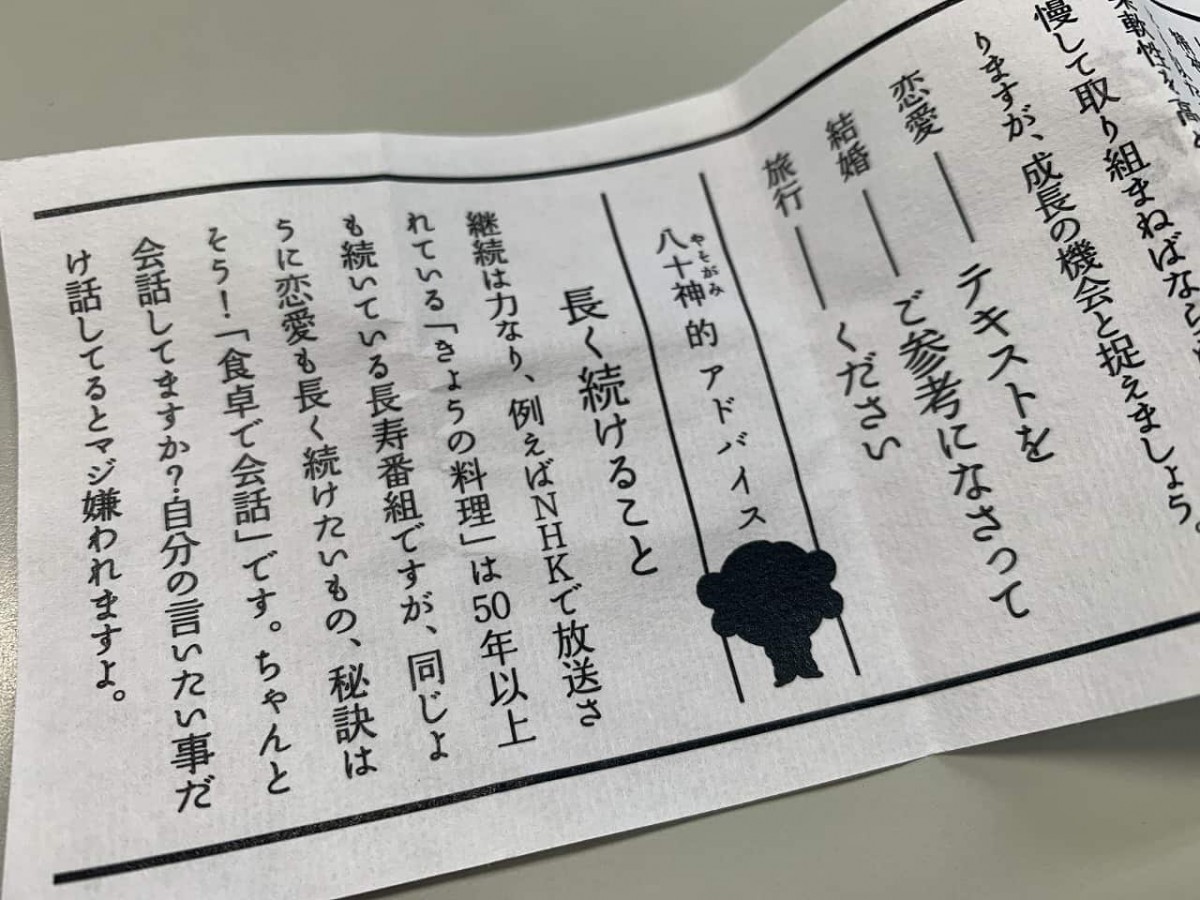 慢して取り組まねばなら
りますが、成長の機会と捉えましょう
恋愛――テキストを
結婚――ご参考になさって
旅行――ください
八十神的アドバイス
やそがみ
長く続けること
継続は力なり、例えばNHKで放送さ
れている「きょうの料理」は50年以上
も続いている長寿番組ですが、同じよ
うに恋愛も長く続けたいもの、秘訣は
そう!「食卓で会話」です。ちゃんと
会話してますか?自分の言いたい事だ
け話してるとマジ嫌われますよ。